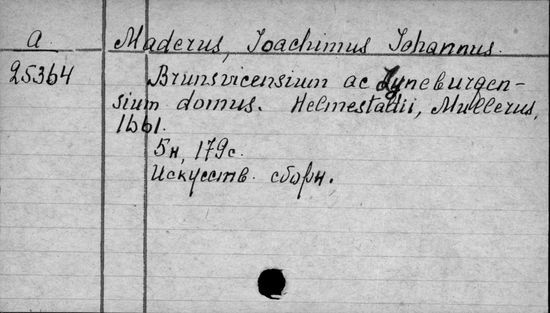 A Maderus, Joachimus Johannus.
25364 Brunsvicensium ac Lyneburgen-
sium domus. Helmestadii, Mullerus,
1661.
5н, 179с.
Искусств. сборн.